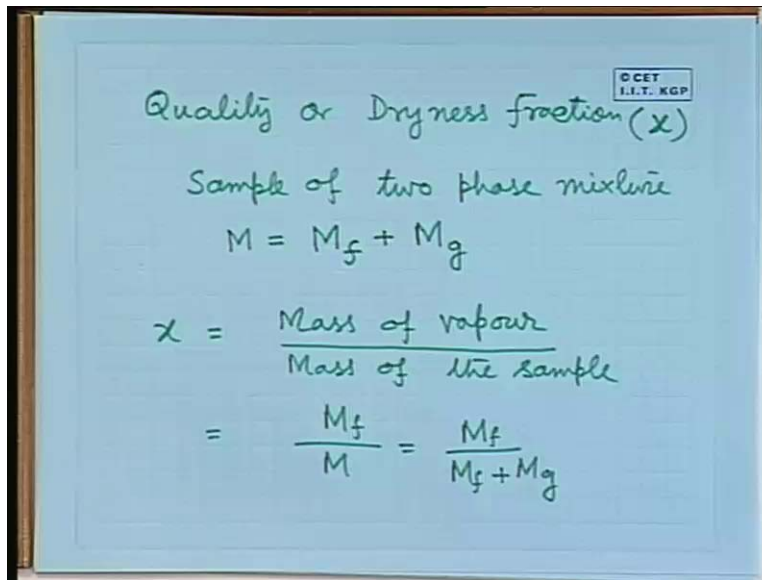 © CET
I.I.T. KGP
Quality or Dryness fraction (x)
Sample of two phase mixture
M = Mf + Mg
x = Mass of vapour / Mass of the sample
= Mf / M = Mf / Mf + Mg